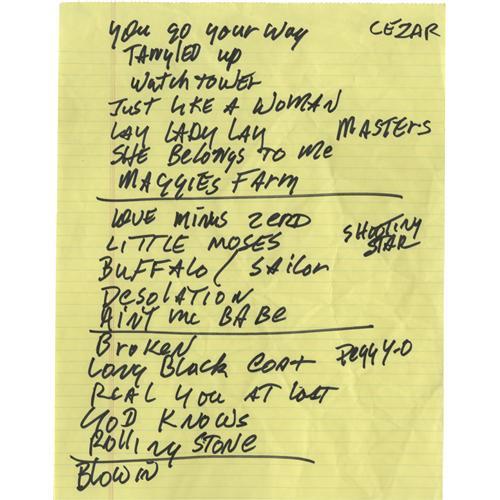 you go your way
CEZAR
TANGLED up
watchtower
JUST LIKE A WOMAN
LAY LADY LAY
MASTERS
SHE BELONGS TO ME
MAGGIES FARM
LOVE MINUS ZERO
LITTLE MOSES
SHOOTING STAR
BUFFALO / SAILOR
DESOLATION
AIN'T ME BABE
BROKEN
LONG BLACK COAT
PEGGY-O
REAL YOU AT LAST
GOD KNOWS
ROLLING STONE
BLOWIN